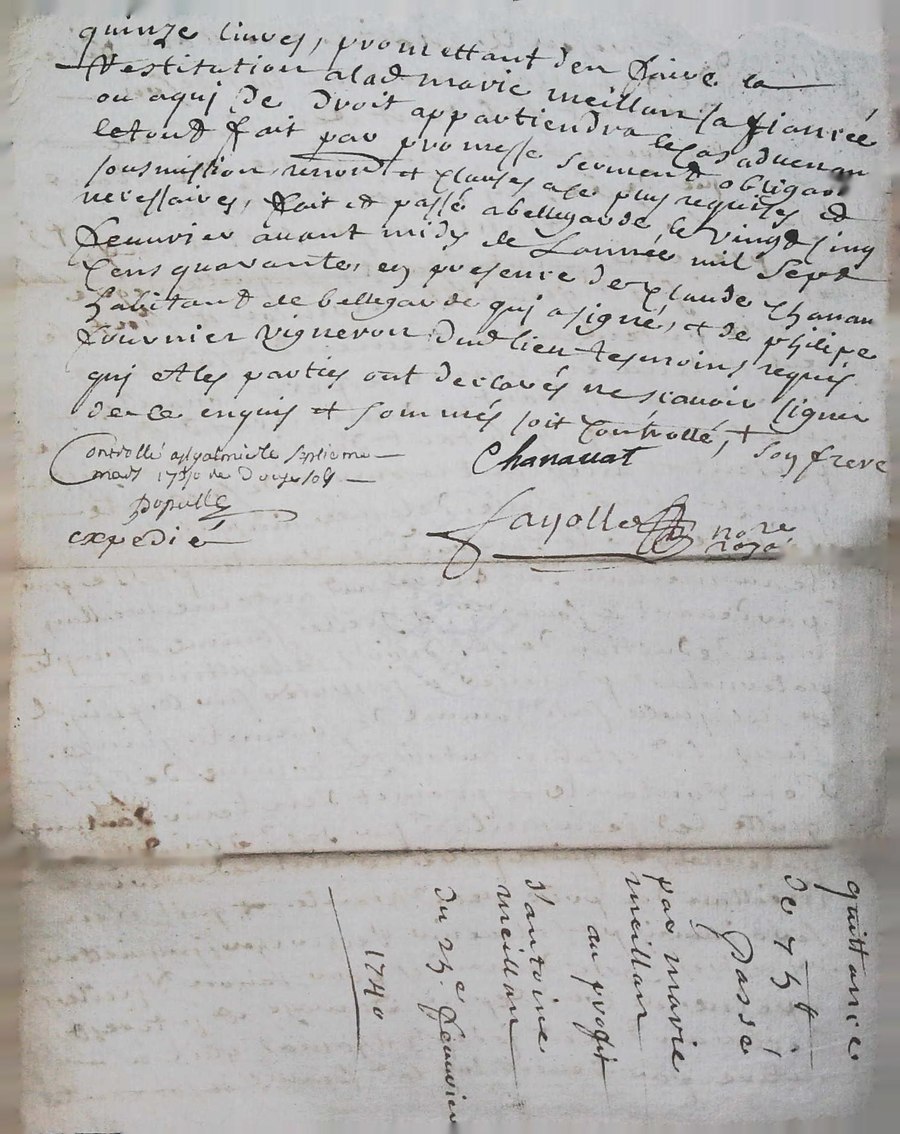 quinze livres, promettant den faire la
Restitution alad marie meillan sa fiancée
ou aqui de droit appartiendra le cas aduenan
letout fait par promesse serment obligaõn
sousmission, renon et clauses ace plus requises et
necessaires, fait et passé abellegarde le vingt sinq
feuvrier auant midy de Lannée mil Sept
Cens quarante, en presence de Claude Chanau
habitant de bellegarde qui a signé, et de philipe
fournier vigneron dud lieu tesmoins requis
qui et les parties ont declarés ne scauoir signer
de ce enquis et sommés soit controllé, + son frere
Controllé le septieme
mars 1740 Chanauat
Fayolle nore
royal
expedié
quittance
de 75ₗₜ
Passé
par marie
meillan
au profit
d'antoine
meillan
du 25e feuvrier
1740